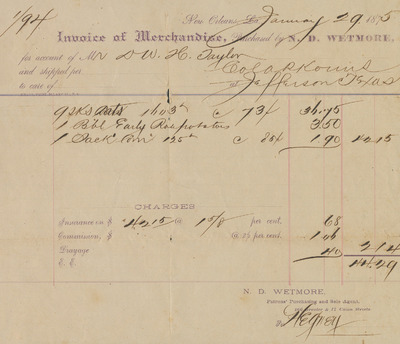 1/94
New Orleans, La January 29 1875
Invoice of Merchandise, Purchased by N. D. WETMORE,
for account of Mr D W. H. Taylor
and shipped per
to care of Jefferson Texas
9 sks Oats c 73/4 36.75
1 Bbl Early Rose potatoes 3.50
1 Sack 1.90 42.15
CHARGES
Insurance on $ 42.15 @ 1 5/8 per cent. 68
Commission, $ @ 2½ per cent. 1.06
Drayage 40 2.14
E. E. 44.29
N. D. WETMORE,
Patrons' Purchasing and Sale Agent,